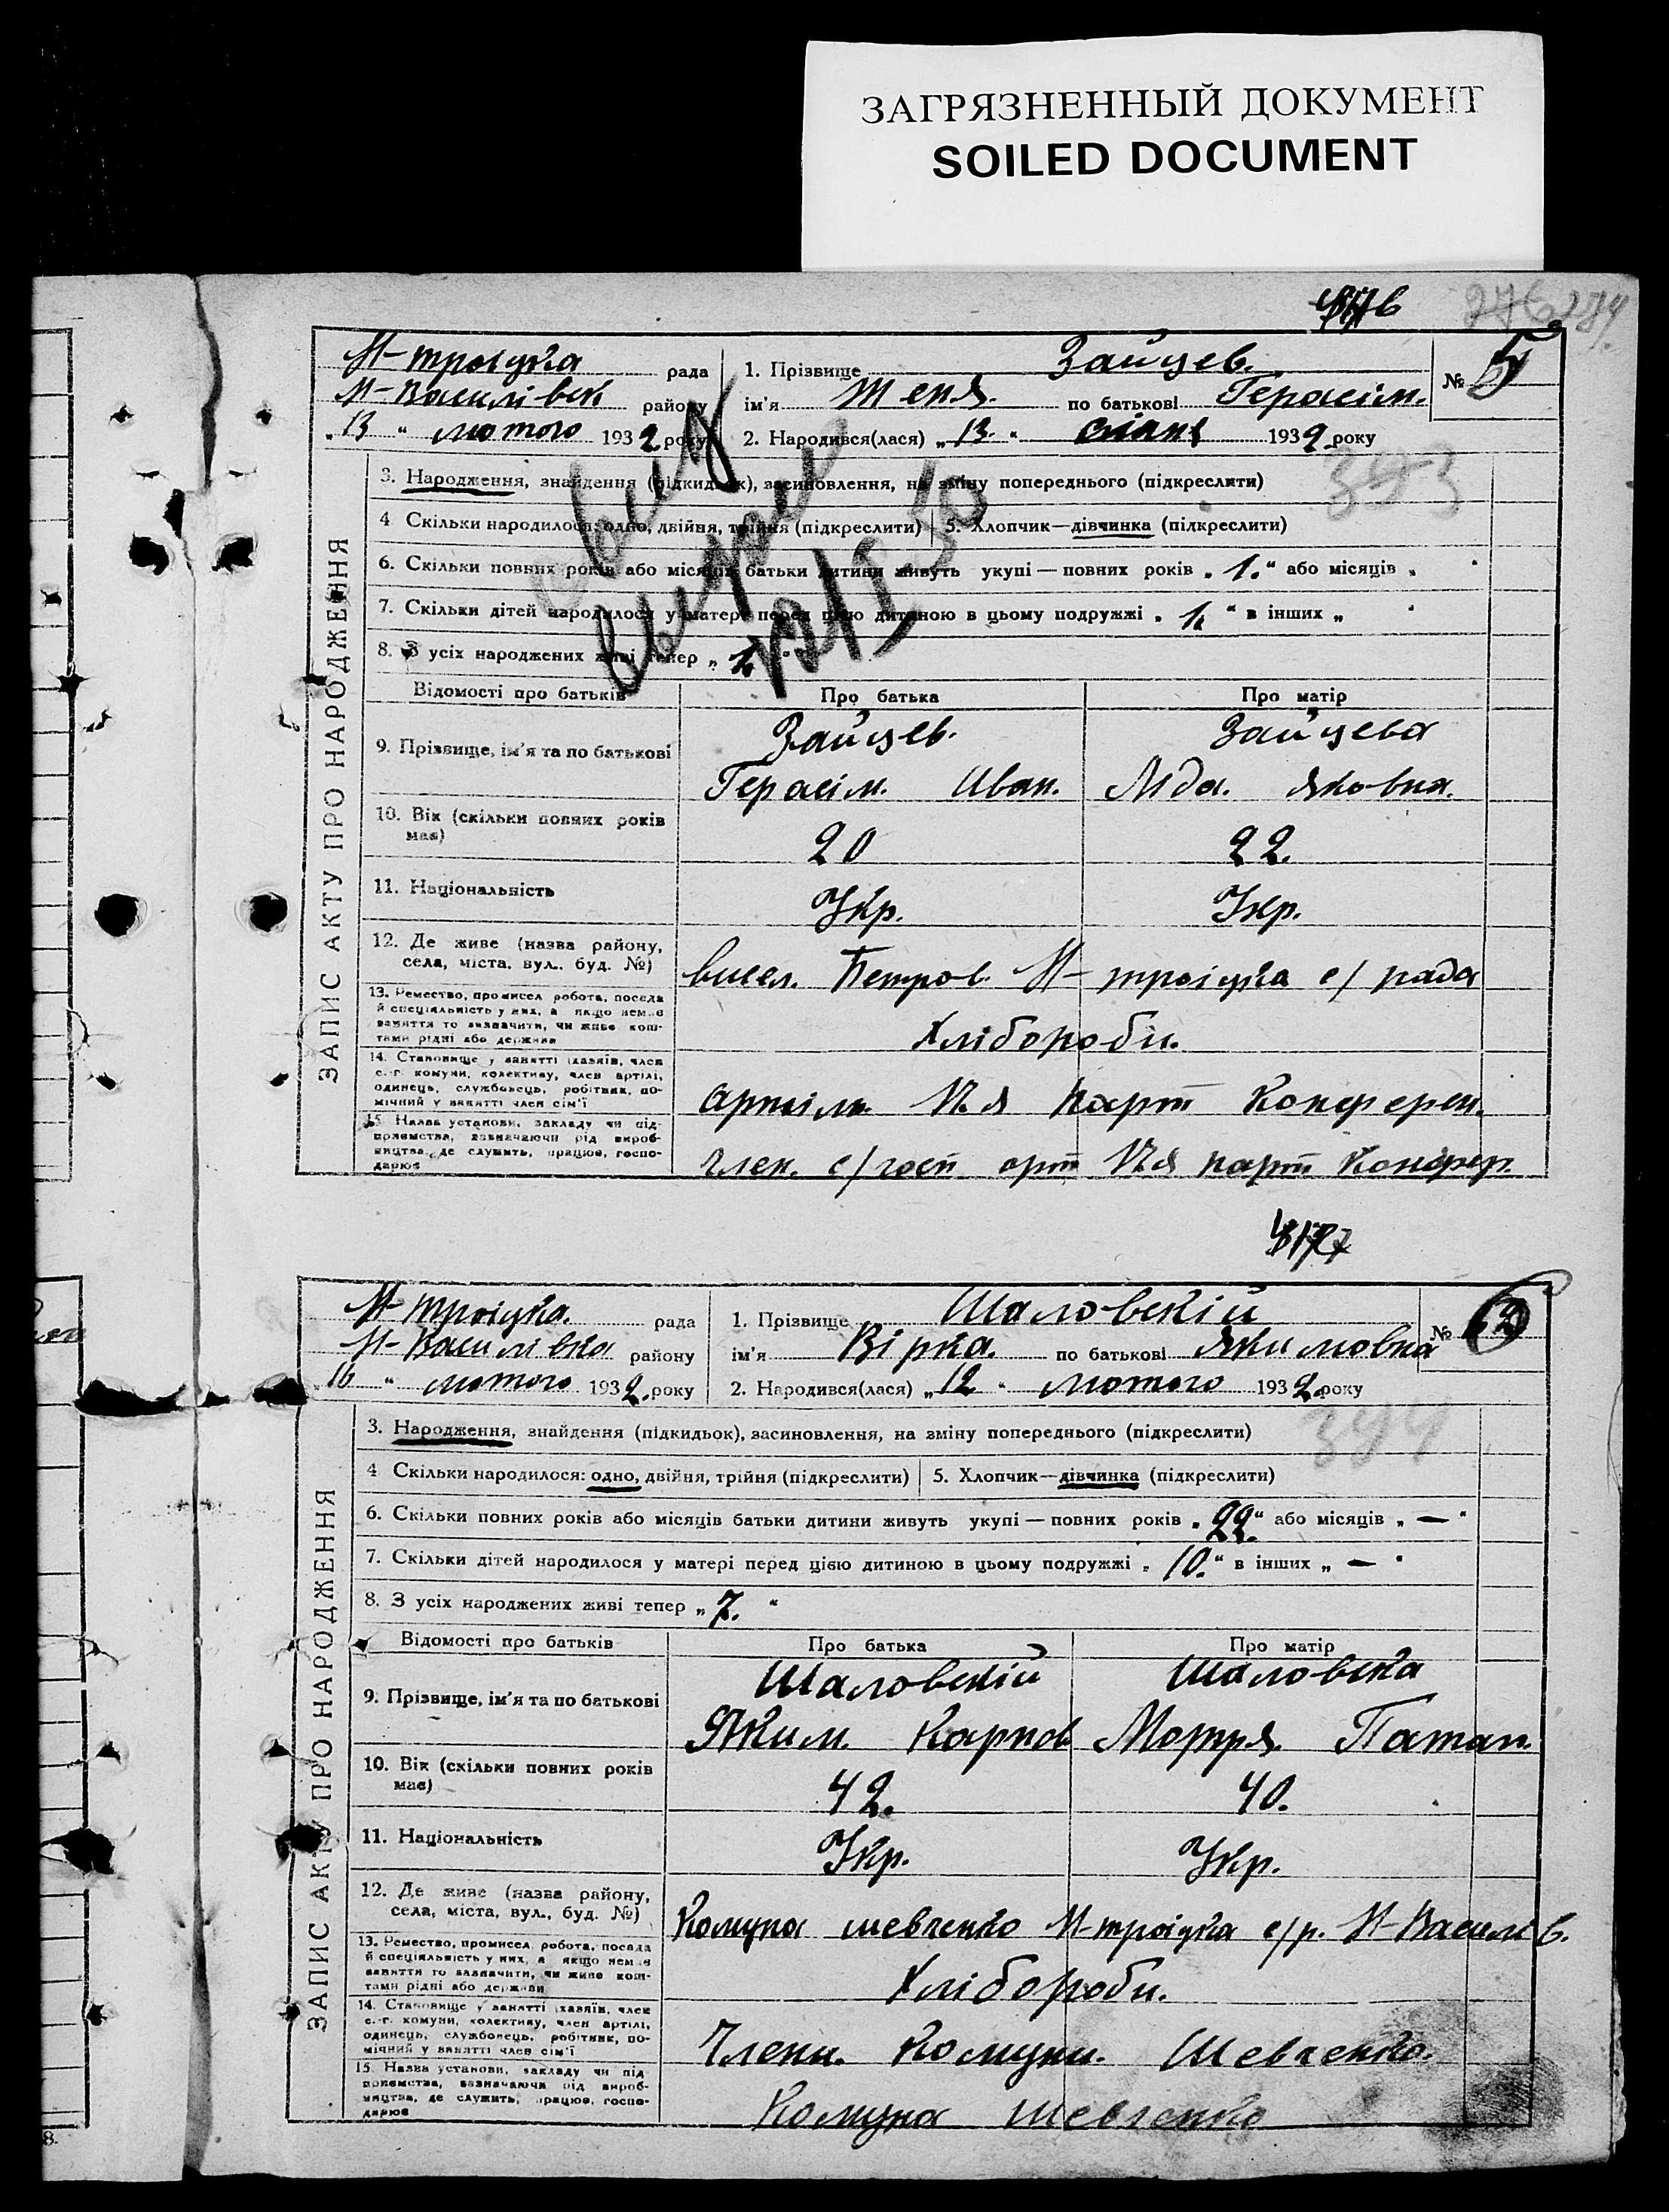 ЗАГРЯЗНЕННЫЙ ДОКУМЕНТ
SOILED DOCUMENT
М-троіцка рада
М-Василівск району
„13 “ лютого 1932 року
1. Прізвище Зайцев.
ім'я Женя. по батькові Герасім.
2. Народився(лася) „13. “ 1932 року
№ 5
393
ЗАПИС АКТУ ПРО НАРОДЖЕННЯ
3. Народження, знайдення (підкидьок), засиновлення, на зміну попереднього (підкреслити)
4 Скільки народилося: одно, двійня, трійня (підкреслити) 5. Хлопчик—дівчинка (підкреслити)
6. Скільки повних років або місяців батьки дитини живуть укупі — повних років „ 1. “ або місяців „ “
7. Скільки дітей народилося у матері перед цією дитиною в цьому подружжі „ 1. “ в інших „ “
8. З усіх народжених живі тепер „ 1. “
Відомості про батьків Про батька Про матір
9. Прізвище, ім'я та по батькові
Зайцев. Зайцева
Герасім. Иван. Ліда. Яковна.
10. Вік (скільки повних років має)
20 22.
11. Національність
Укр. Укр.
12. Де живе (назва району, села, міста, вул., буд. №)
висел. Петров. М-троіцка с/рада
13. Ремество, промисел робота, посада й спеціяльність у них, а якщо немає заняття то зазначити, чи живе коштами рідні або держави
Хлібороби.
14. Становище у занятті (хазяїн, член с.-г. комуни, колективу, член артілі, одинець, службовець, робітник, помічний у занятті член сім'ї
артіль 17.я парт Конферен.
15. Назва установи, закладу чи підприємства, зазначаючи рід виробництва, де служить, працює, господарює
член. с/госп арт 17я парт Конферен.
М-троіцка. рада
М-Василівка району
„16 “ лютого 1932. року
1. Прізвище Шаловскій
ім'я Вірка. по батькові Якимовна
2. Народився(лася) „12 “ лютого 1932. року
№ 6
394
ЗАПИС АКТУ ПРО НАРОДЖЕННЯ
3. Народження, знайдення (підкидьок), засиновлення, на зміну попереднього (підкреслити)
4 Скільки народилося: одно, двійня, трійня (підкреслити) 5. Хлопчик—дівчинка (підкреслити)
6. Скільки повних років або місяців батьки дитини живуть укупі — повних років „ 22. “ або місяців „ — “
7. Скільки дітей народилося у матері перед цією дитиною в цьому подружжі „ 10. “ в інших „ — “
8. З усіх народжених живі тепер „ 7. “
Відомості про батьків Про батька Про матір
9. Прізвище, ім'я та по батькові
Шаловскій Шаловска
Яким. Карпов Мотря. Патап.
10. Вік (скільки повних років має)
42. 40.
11. Національність
Укр. Укр.
12. Де живе (назва району, села, міста, вул., буд. №)
Комуна шевченко М-троіцка с/р. М-Василів.
13. Ремество, промисел, робота, посада й спеціяльність у них, а якщо немає заняття то зазначити, чи живе коштами рідні або держави
Хлібороби.
14. Становище у занятті (хазяїн, член с.-г. комуни, колективу, член артілі, одинець, службовець, робітник, помічний у занятті член сім'ї
Члени. Комуни. Шевченко.
15. Назва установи, закладу чи підприємства, зазначаючи рід виробництва, де служить, працює, господарює
Комуна шевченко
8.